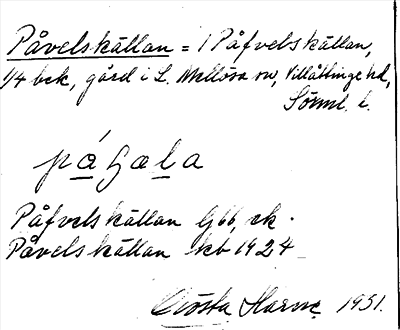 Påvelskällan = 1 Påfvelskällan,
1/4 bck, gård i L. Mellösa sn, Villåttinge hd,
Sörml. l.
på Gala
Påfvelskällan Gbb, ek.
Påvelskällan kb 1924
Gösta 1951.